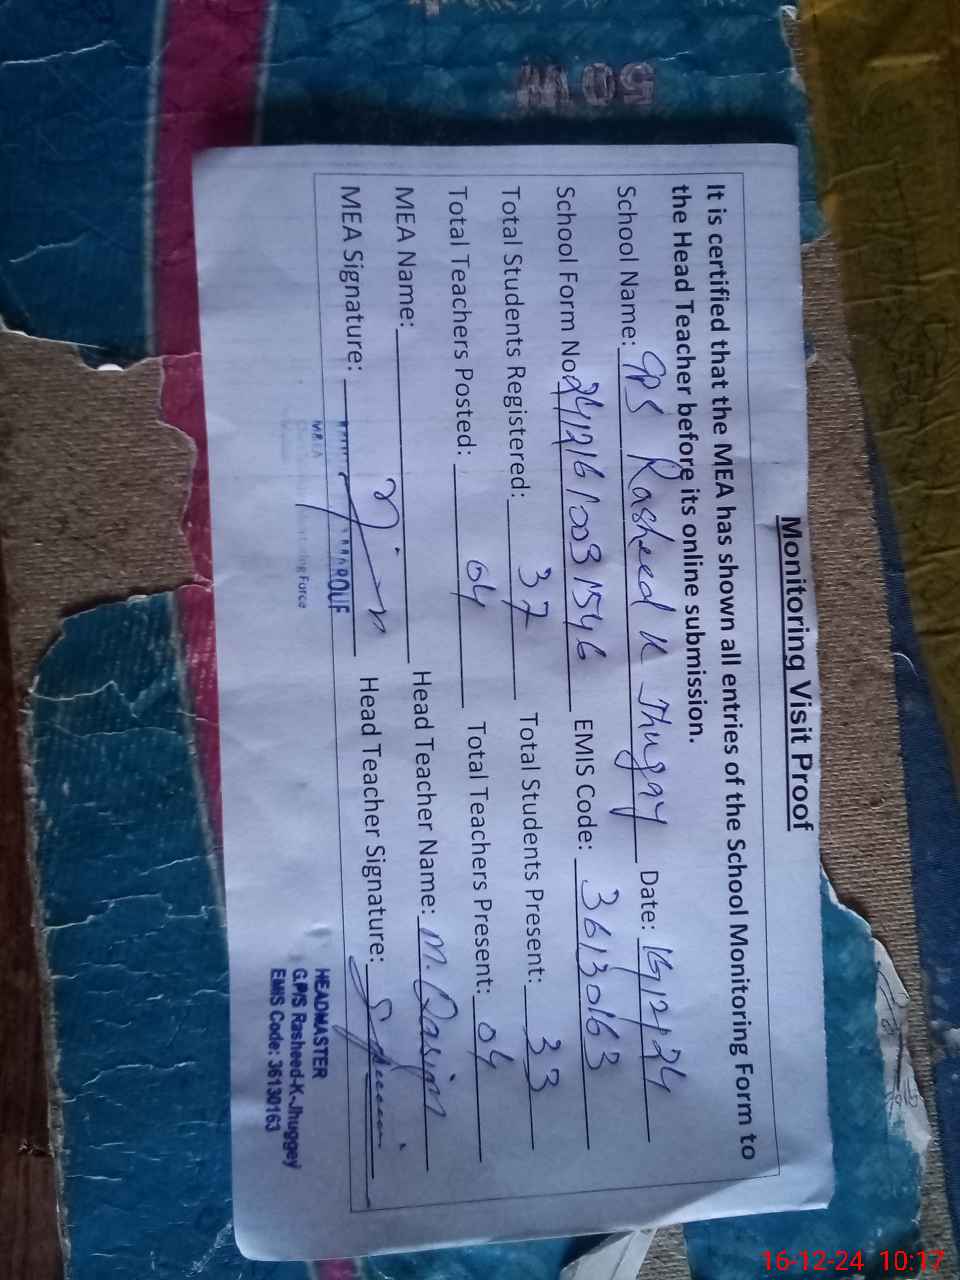 Monitoring Visit Proof
It is certified that the MEA has shown all entries of the School Monitoring Form to
the Head Teacher before its online submission.
School Name: GPS Rasheed K Jhuggy Date: 16/12/24
School Form No: EMIS Code: 36130163
Total Students Registered: 37 Total Students Present: 33
Total Teachers Posted: 04 Total Teachers Present: 04
MEA Name: Head Teacher Name: M. Qasim
MEA Signature: Head Teacher Signature:
MAROUF
MEA
Monitoring Force
HEADMASTER
G.P/S Rasheed-K-Jhuggey
EMIS Code: 36130163
50
16-12-24 10:17